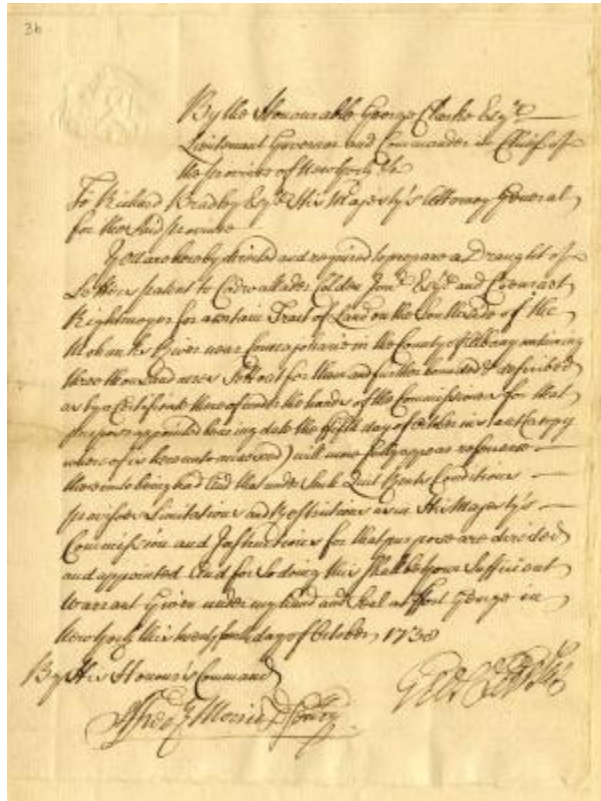 36
By the Honourable George Clarke Esqr.
Lieutenant Governor and Commander in Chief of
the province of New York &c
To Richard Bradley Esqr. His Majesty's Attorney General
for the said province
You are hereby directed and required to prepare a Draught of
Letters patent to Cadwallader Colden Junr. Esqr. and Coenraet
Rightmeyer for a certain Tract of Land on the South side of the
Mohawks River near Conajoharie in the County of Albany containing
three thousand acres Sett out for them and further bounded & described
as by a Certificate thereof under the hands of the Commissioners for that
purpose appointed bearing date the fifth day of October instant (a copy
whereof is hereunto annexed) will more fully appear reference
thereunto being had And that under such Quit Rents Conditions
provisoes Limitations and Restrictions as in His Majesty's
Commission and Instructions for that purpose are directed
and appointed And for so doing this shall be your Sufficient
Warrant Given under my hand and Seal at Fort George in
New York this day of October 1738
By His Honour's Command
Geo Clarke
Fred Morris D Secry.